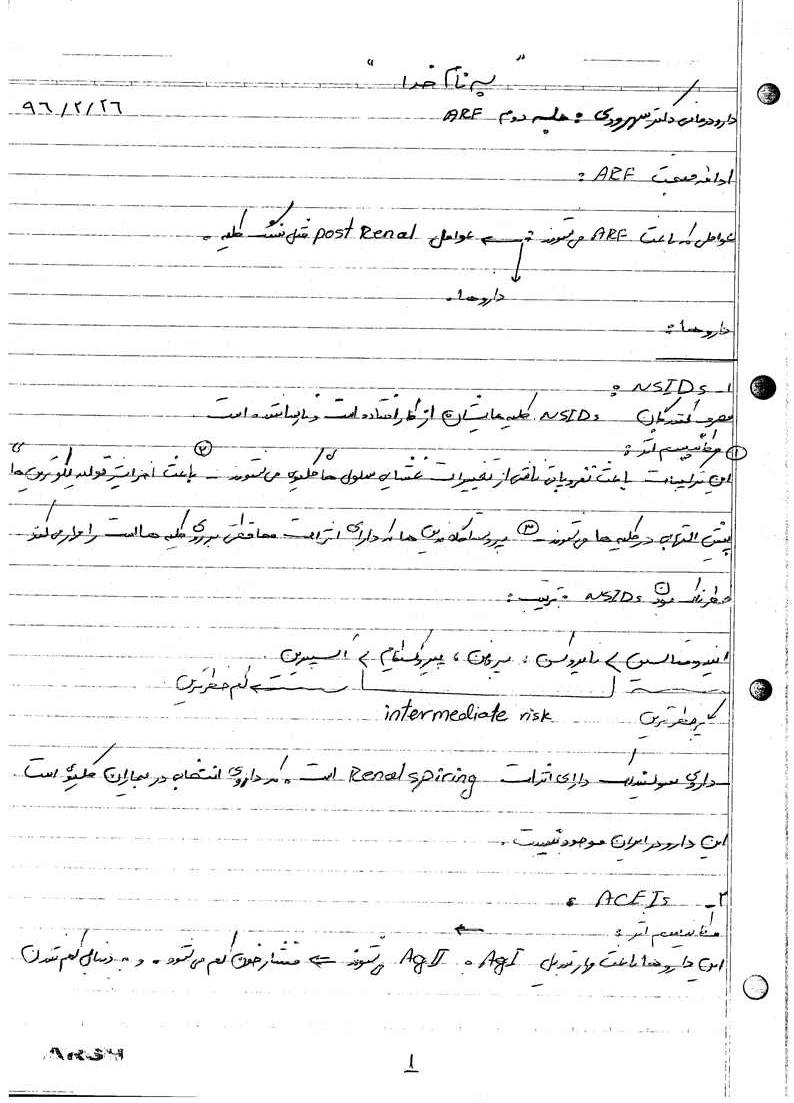 " به نام خدا "
دارودرمانی دکتر سهرودی : جلسه دوم ARF ۹۶/۲/۲۶
ادامه مبحث ARF :
عواملی که باعث ARF می‌شوند : ← عوامل post Renal مثل سنگ کلیه .
داروها .
داروها :
۱- NSIDs :
مصرف کنندگان NSIDs کلیه هایشان از کار افتاده است و نارسا شده است .
① مکانیسم اثر :
این ترکیبات باعث نفروپاتی ناشی از تغییرات غشای سلول های کلیوی می‌شوند - ② باعث افزایش تولید لکوترین های
پیش التهابی در کلیه ها می‌شوند - ③ پروستاگلاندین ها که دارای اثرات محافظتی بر روی کلیه هاست را مهار می کند
خطرناک بودن NSIDs به ترتیب :
ایندومتاسین > ناپروکسن ، بروفن ، پیروکسیکام > آسپرین
کم خطرترین
پرخطرترین intermediate risk
داروی سولینداک دارای اثرات Renal spiring است . که داروی انتخابی در بیماران کلیوی است .
این دارو در ایران موجود نیست .
۲- ACEIs :
مکانیسم اثر : ←
این داروها باعث مهار تبدیل AgI به AgII می‌شوند ← فشار خون کم می‌شود . و به دنبال کم شدن
۱
ARSH